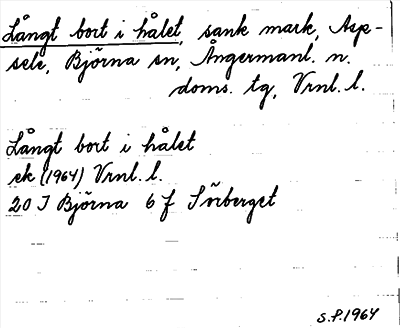 Långt bort i hålet, sank mark, Asp-
sele, Björna sn, Ångermanl. n.
doms. tg, Vrnl. l.
Långt bort i hålet
ek (1964) Vrnl. l.
20 J Björna 6 f Sörberget
S.P. 1964